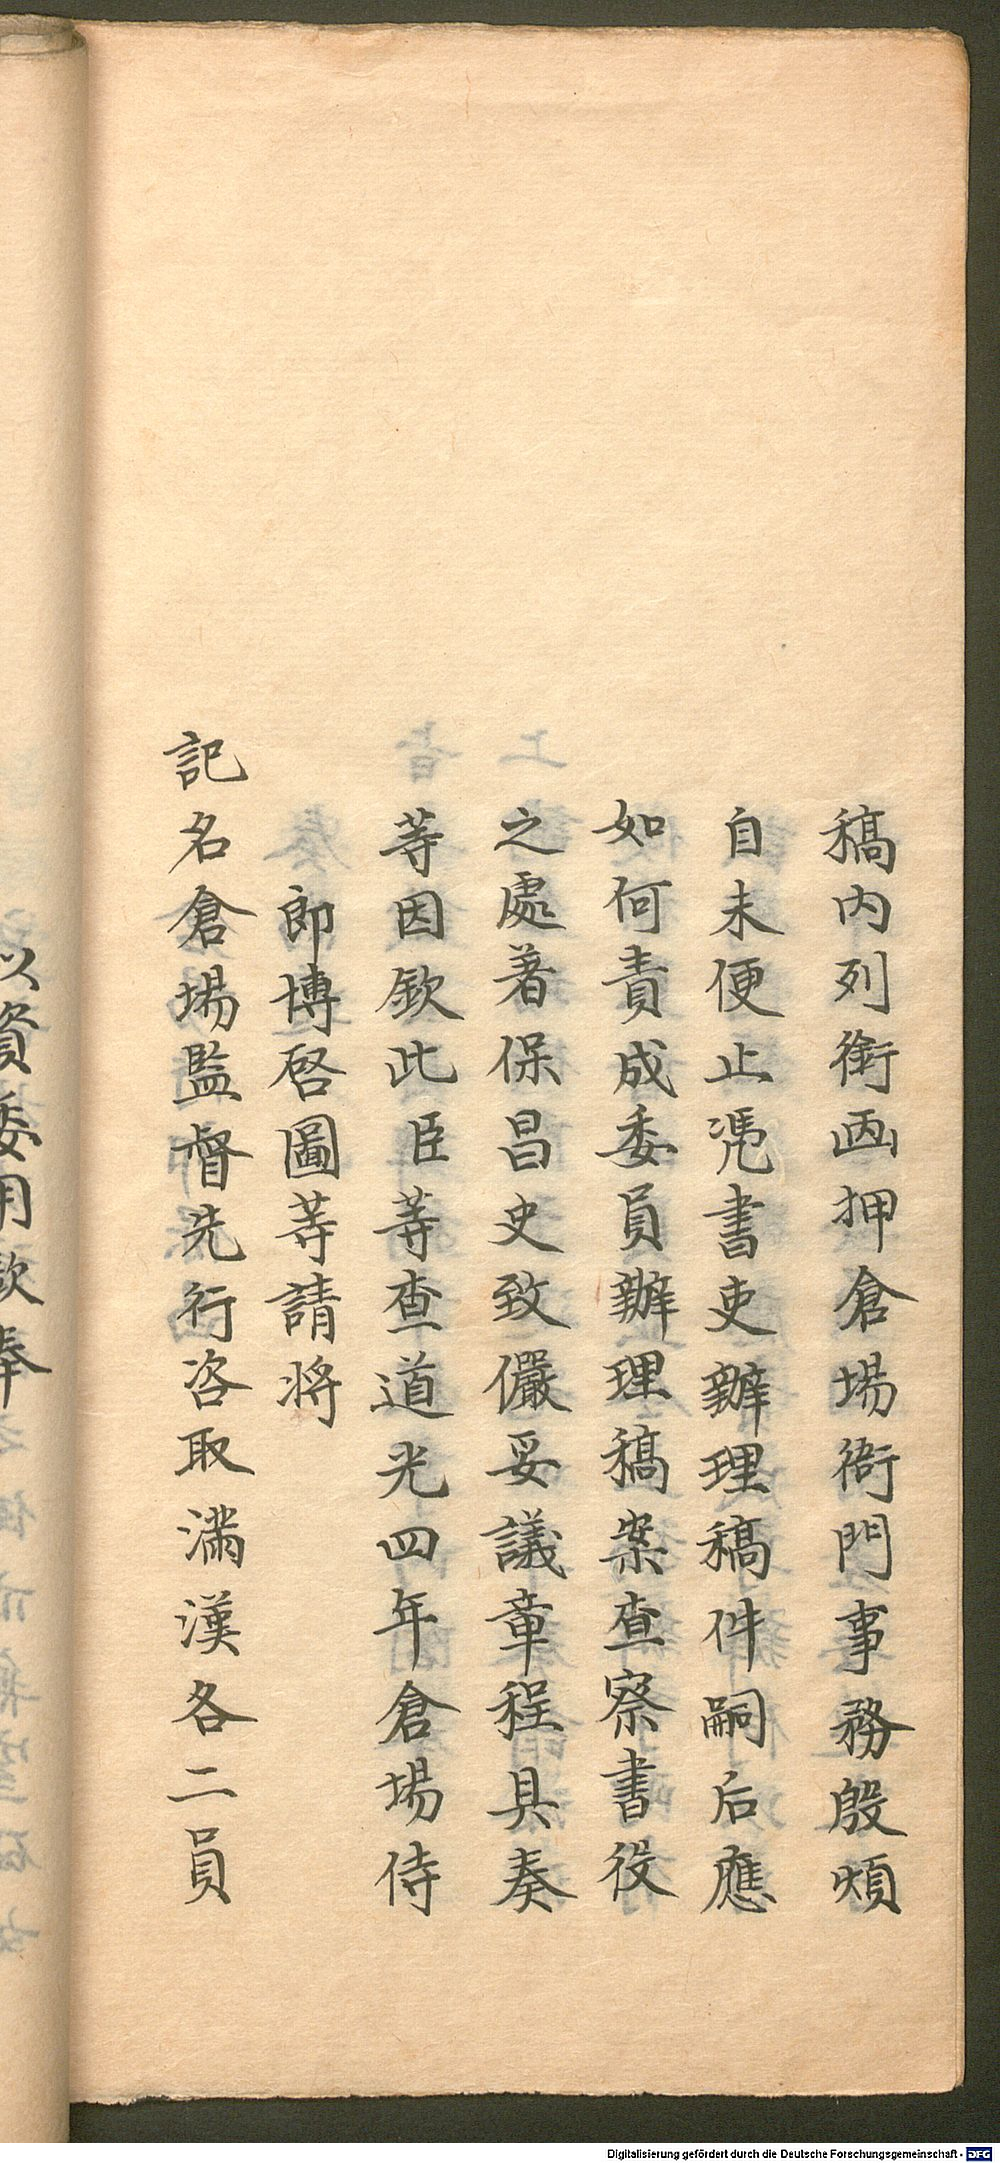 稿内列銜画押倉場衙門事務殷煩
自未便止凴書吏辦理稿件嗣后應
如何責成委員辦理稿案查察書役
之處著保昌史致儼妥議章程具奏
等因欽此臣等查道光四年倉場侍
郎博啓圖等請將
記名倉場監督先行咨取滿漢各二員
以資委用欽奉
Digitalisierung gefördert durch die Deutsche Forschungsgemeinschaft - DFG